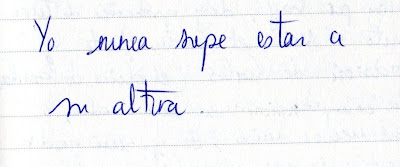 Yo nunca supe estar a
su altura.